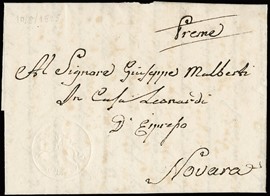 Preme
Al Signore Giuseppe Malberti
In Casa Leonardi
D'
Novara